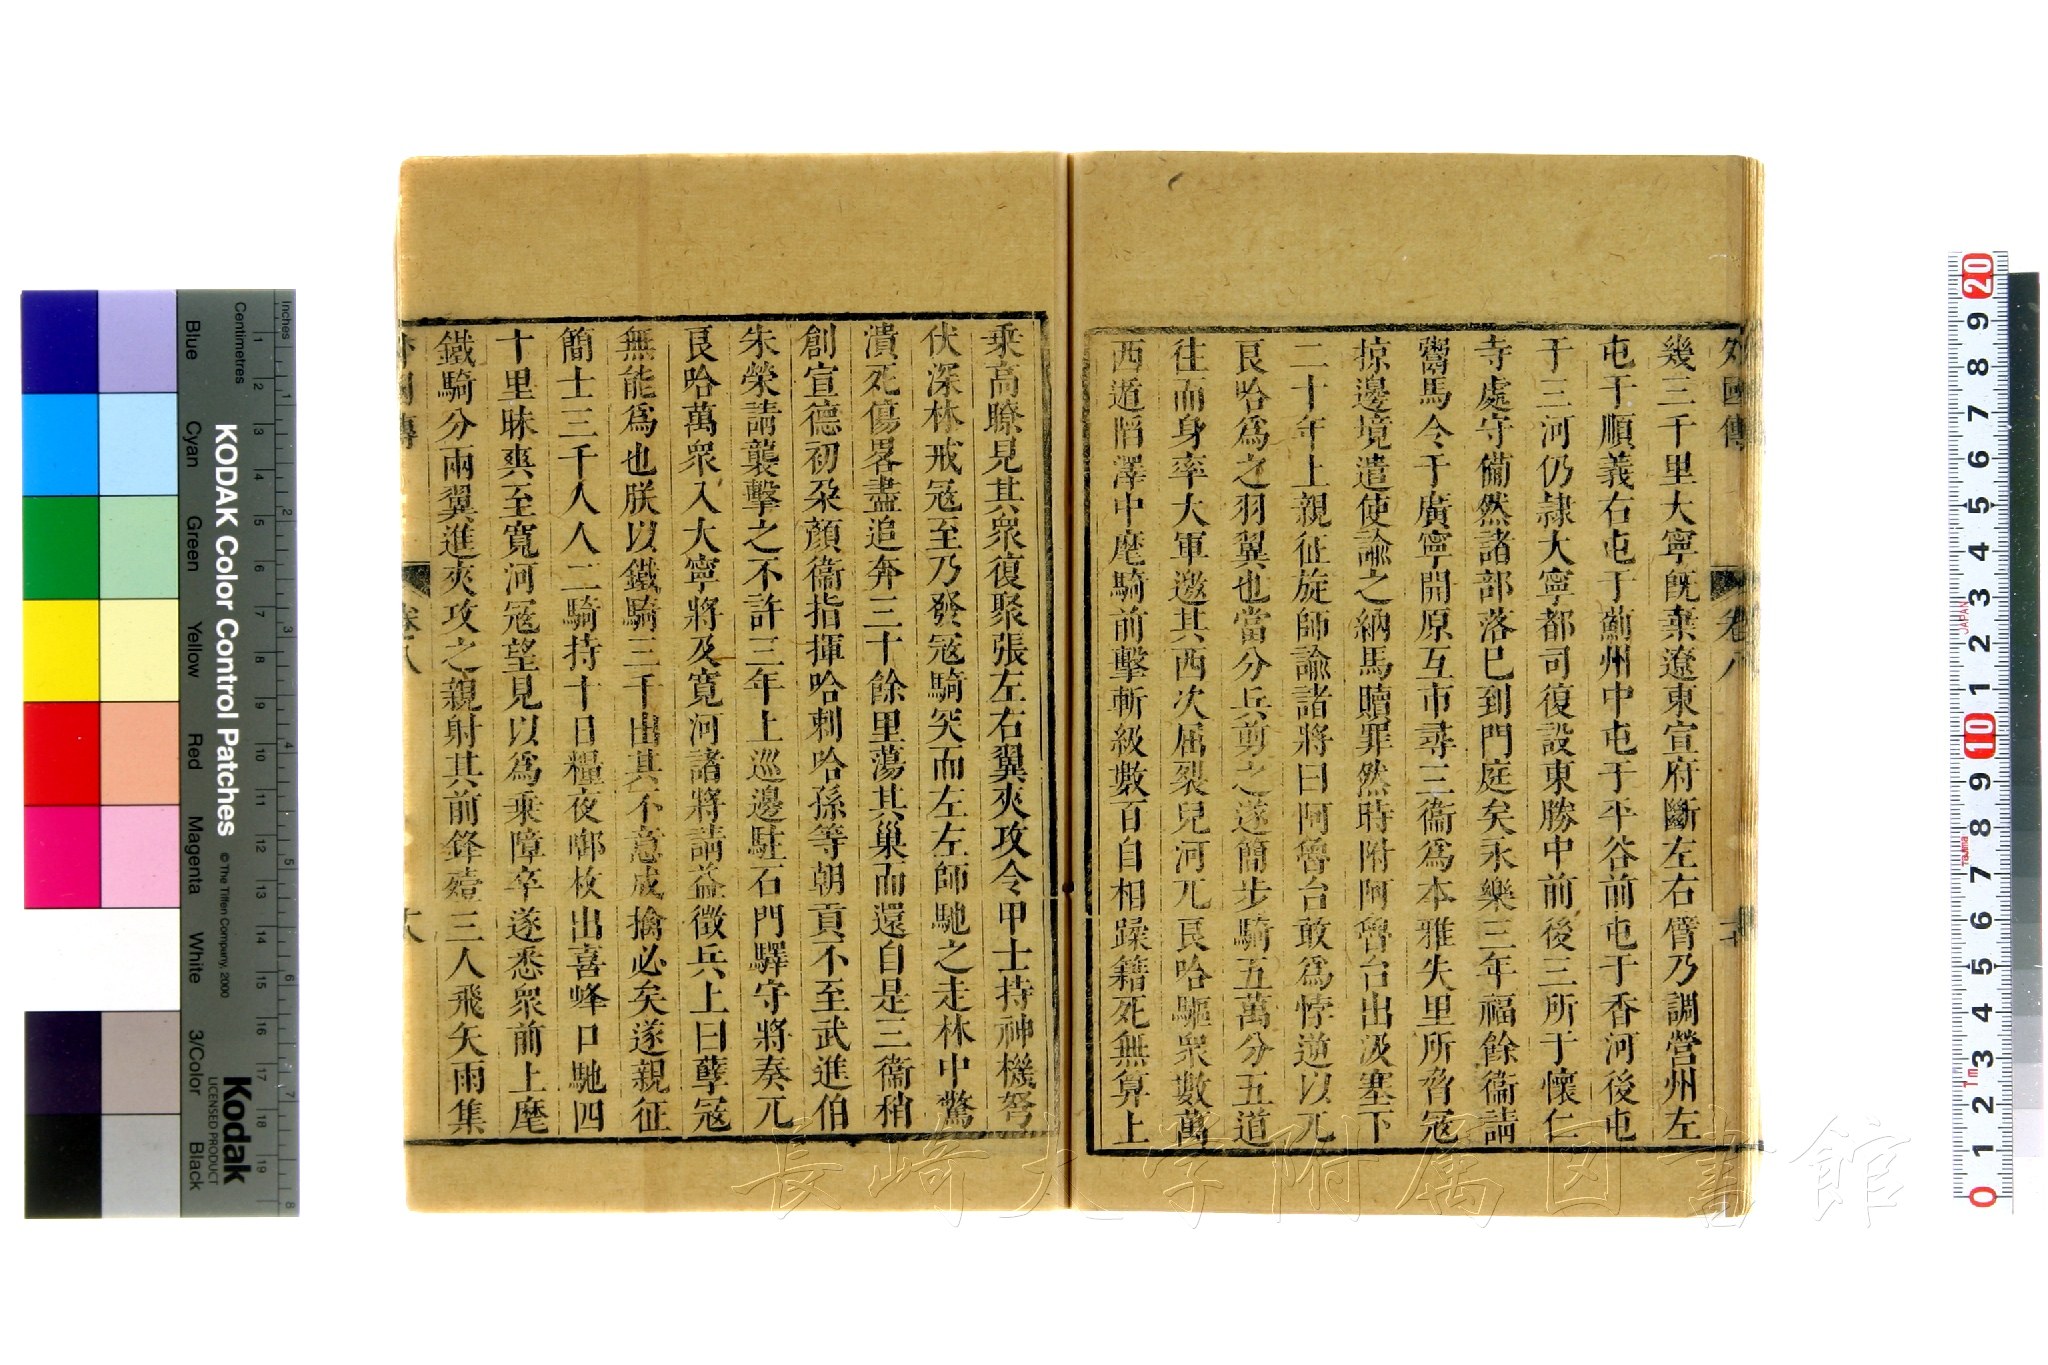 外國傳 卷八
幾三千里大寧既棄遼東宣府斷左右臂乃調營州左
屯于順義右屯于薊州中屯于平谷前屯于香河後屯
于三河仍隸大寧都司復設東勝中前後三所于懷仁
寺處守備然諸部落巳到門庭矣永樂三年福餘衞請
鬻馬令于廣寧開原互市尋三衞爲本雅失里所脅寇
掠邊境遣使諭之納馬贖罪然時附阿魯台出汲塞下
二十年上親征旋師諭諸將曰阿魯台敢爲悖逆以兀
良哈爲之羽翼也當分兵剪之遂簡步騎五萬分五道
往而身率大軍邀其西次屈裂兒河兀良哈驅衆數萬
西遁陷澤中麾騎前擊斬級數百自相躁籍死無算上
乘高瞭見其衆復聚張左右翼夾攻令甲士持神機弩
伏深林戒寇至乃發寇騎突而左左師馳之走林中驚
潰死傷畧盡追奔三十餘里蕩其巢而還自是三衞稍
創宣德初朶顏衞指揮哈剌哈孫等朝貢不至武進伯
朱榮請襲擊之不許三年上巡邊駐石門驛守將奏兀
良哈萬衆入大寧將及寬河諸將請益徵兵上曰孽寇
無能爲也朕以鐵騎三千出其不意成擒必矣遂親征
簡士三千人人二騎持十日糧夜啣枚出喜峰口馳四
十里昧爽至寬河寇望見以爲乘障卒遂悉衆前上麾
鐵騎分兩翼進夾攻之親射其前鋒殪三人飛矢雨集
卷八
長崎大学附属図書館
KODAK Color Control Patches
© The Tiffen Company, 2000
Kodak
LICENSED PRODUCT
Inches
Centimetres
Blue
Cyan
Green
Yellow
Red
Magenta
White
3/Color
Black
1 2 3 4 5 6 7 8 9 10 11 12 13 14 15 16 17 18 19
1 2 3 4 5 6 7 8
20 9 8 7 6 5 4 3 2 1 10 9 8 7 6 5 4 3 2 1 0
JAPAN
1m